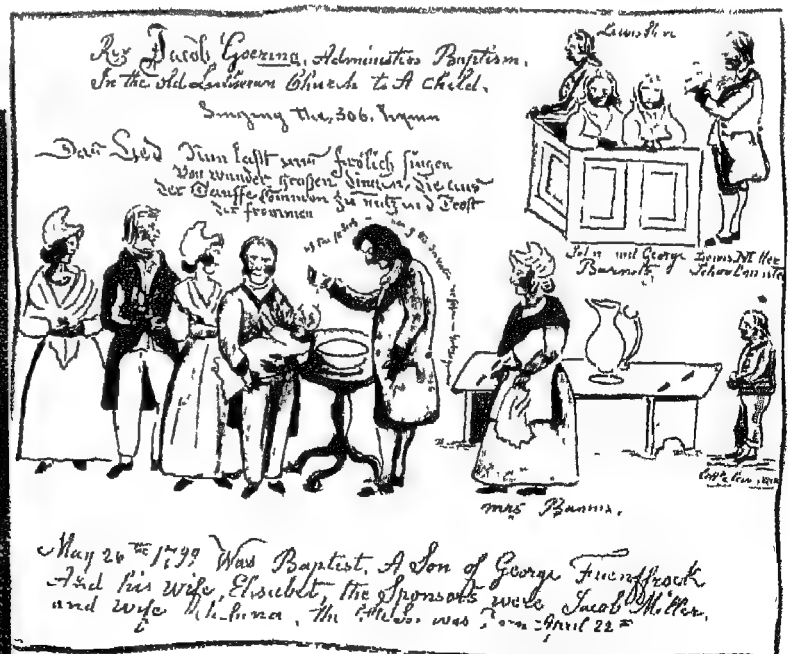 Rev Jacob Goering, Administers Baptism.
In the old Lutheran Church to A Child.
Singing the, 306. hymn
Das Lied Nun lasst uns frölich singen
Von wunder grossen dingen, die aus
der Tauffe kommen zu nutz und Trost
der frommen
Lewis
John and George
Barnetz,
Lewis Miller
Schoolmaster
mrs Baum.
May 26th 1799 Was Baptist, A Son of George Fuenffrock
And his wife, Elisabet, the Sponsors were Jacob Miller,
and wife was Born April 22